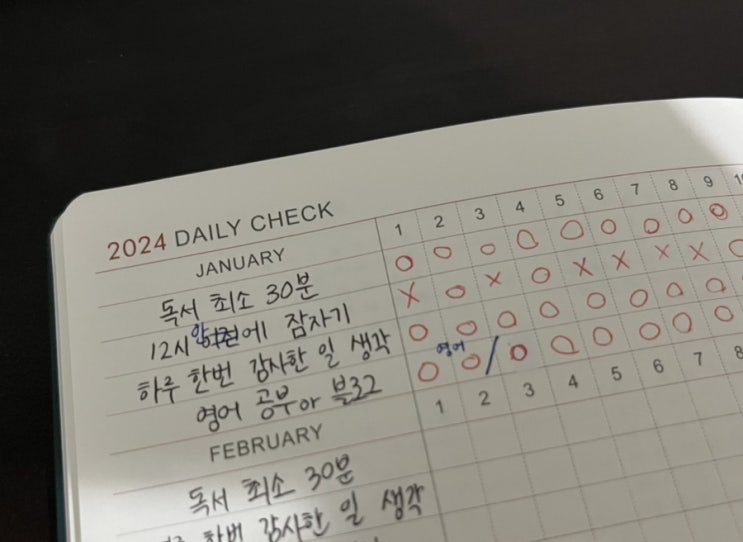 2024 DAILY CHECK
JANUARY 1 2 3 4 5 6 7 8 9
독서 최소 30분 O O O O O O O O O
12시 안에 잠자기 X O X O X X X X
하루 한번 감사한 일 생각 O O O O O O O O O
영어
영어 공부 O O / O O O O O O
FEBRUARY 1 2 3 4 5 6 7 8
독서 최소 30분
한번 감사한 일 생각